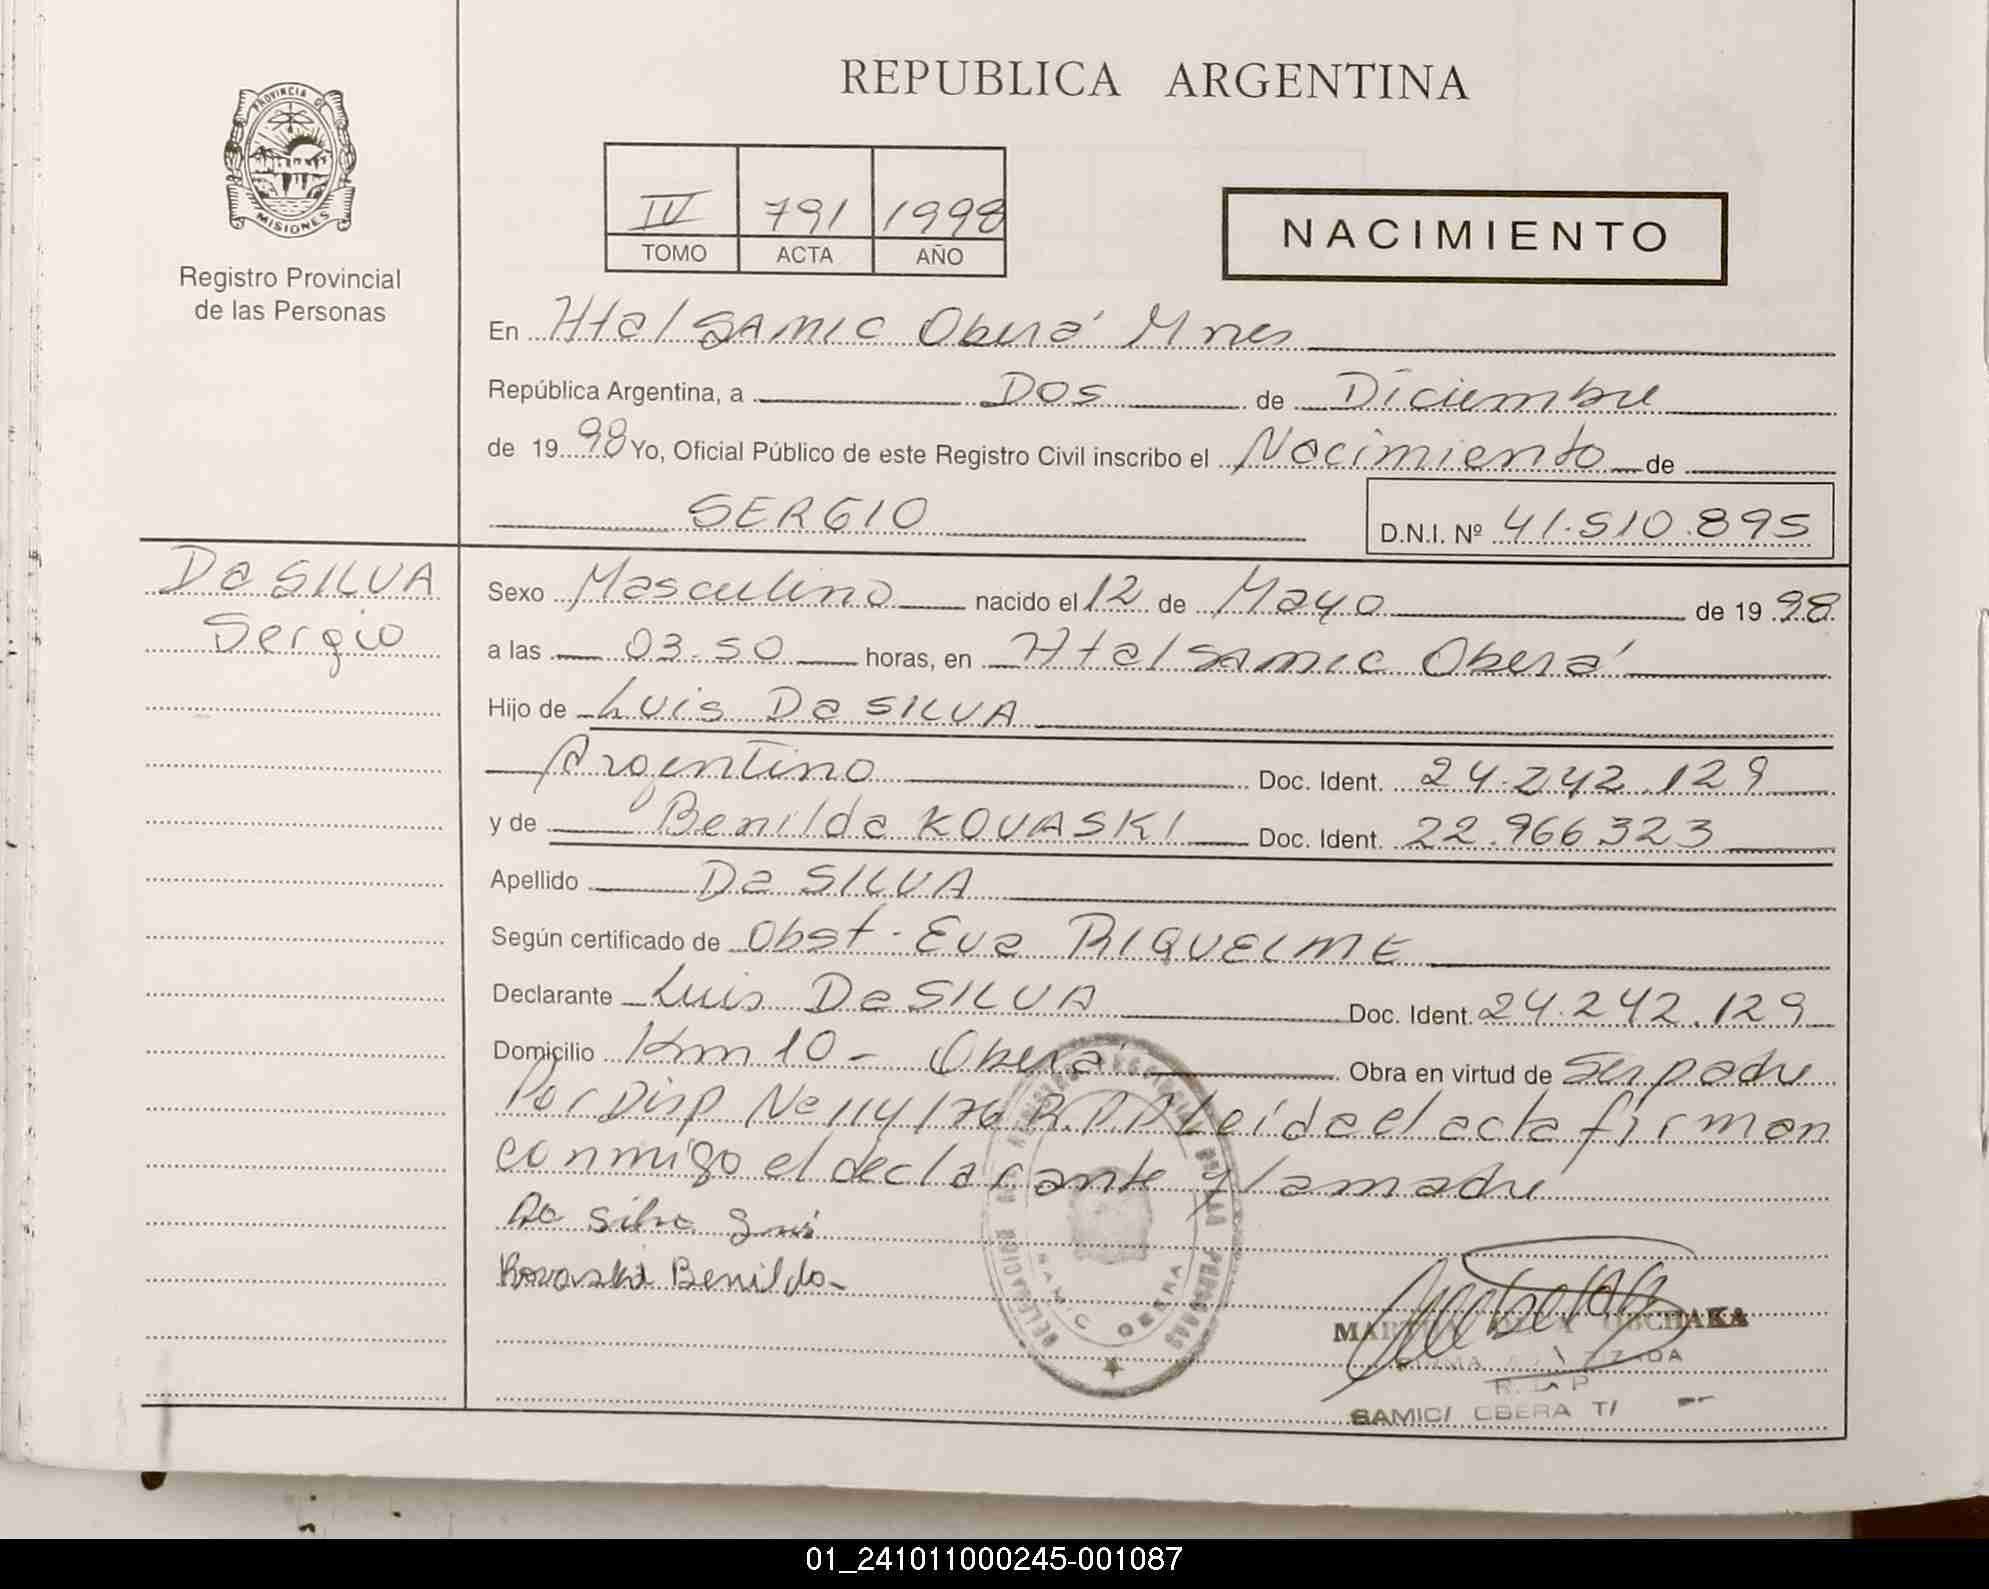 REPUBLICA ARGENTINA
PROVINCIA D
MISIONES
Registro Provincial
de las Personas
IV 791 1998
TOMO ACTA AÑO
NACIMIENTO
En Htal SAMIC Oberá Mnes
República Argentina, a DOS de Diciembre
de 19 98 Yo, Oficial Público de este Registro Civil inscribo el Nacimiento de
SERGIO D.N.I. Nº 41.510.895
Da SILVA
Sergio
Sexo Masculino nacido el 12 de Mayo de 19 98
a las 03.50 horas, en Htal SAMIC Oberá
Hijo de Luis Da SILVA
Argentino Doc. Ident. 24.242.129
y de Benilda KOVASKI Doc. Ident. 22.966.323
Apellido Da SILVA
Según certificado de Obst. Eva RIQUELME
Declarante Luis Da SILVA Doc. Ident. 24.242.129
Domicilio Km 10 - Oberá Obra en virtud de Ser padre
Por Disp Nº 114/76 R.P.P Leída el acta firman
conmigo el declarante y la madre
Da Silva Luis
Kovaski Benilda
SAMIC OBERA
R. P
SAMIC/ OBERA
01_241011000245-001087